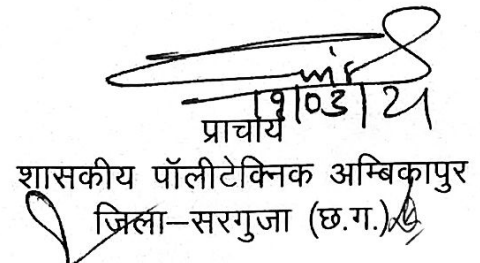 19/03/21
प्राचार्य
शासकीय पॉलीटेक्निक अम्बिकापुर
जिला–सरगुजा (छ.ग.)